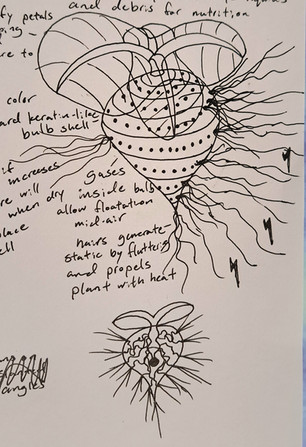 fy petals
and debris for nutrition
ping
re to
color
ard keratin-like
bulb shell
if increases
re will
when dry
place
ell
gases
inside bulb
allow floatation
mid-air
hairs generate
static by fluttering
and propels
plant with heat
angles